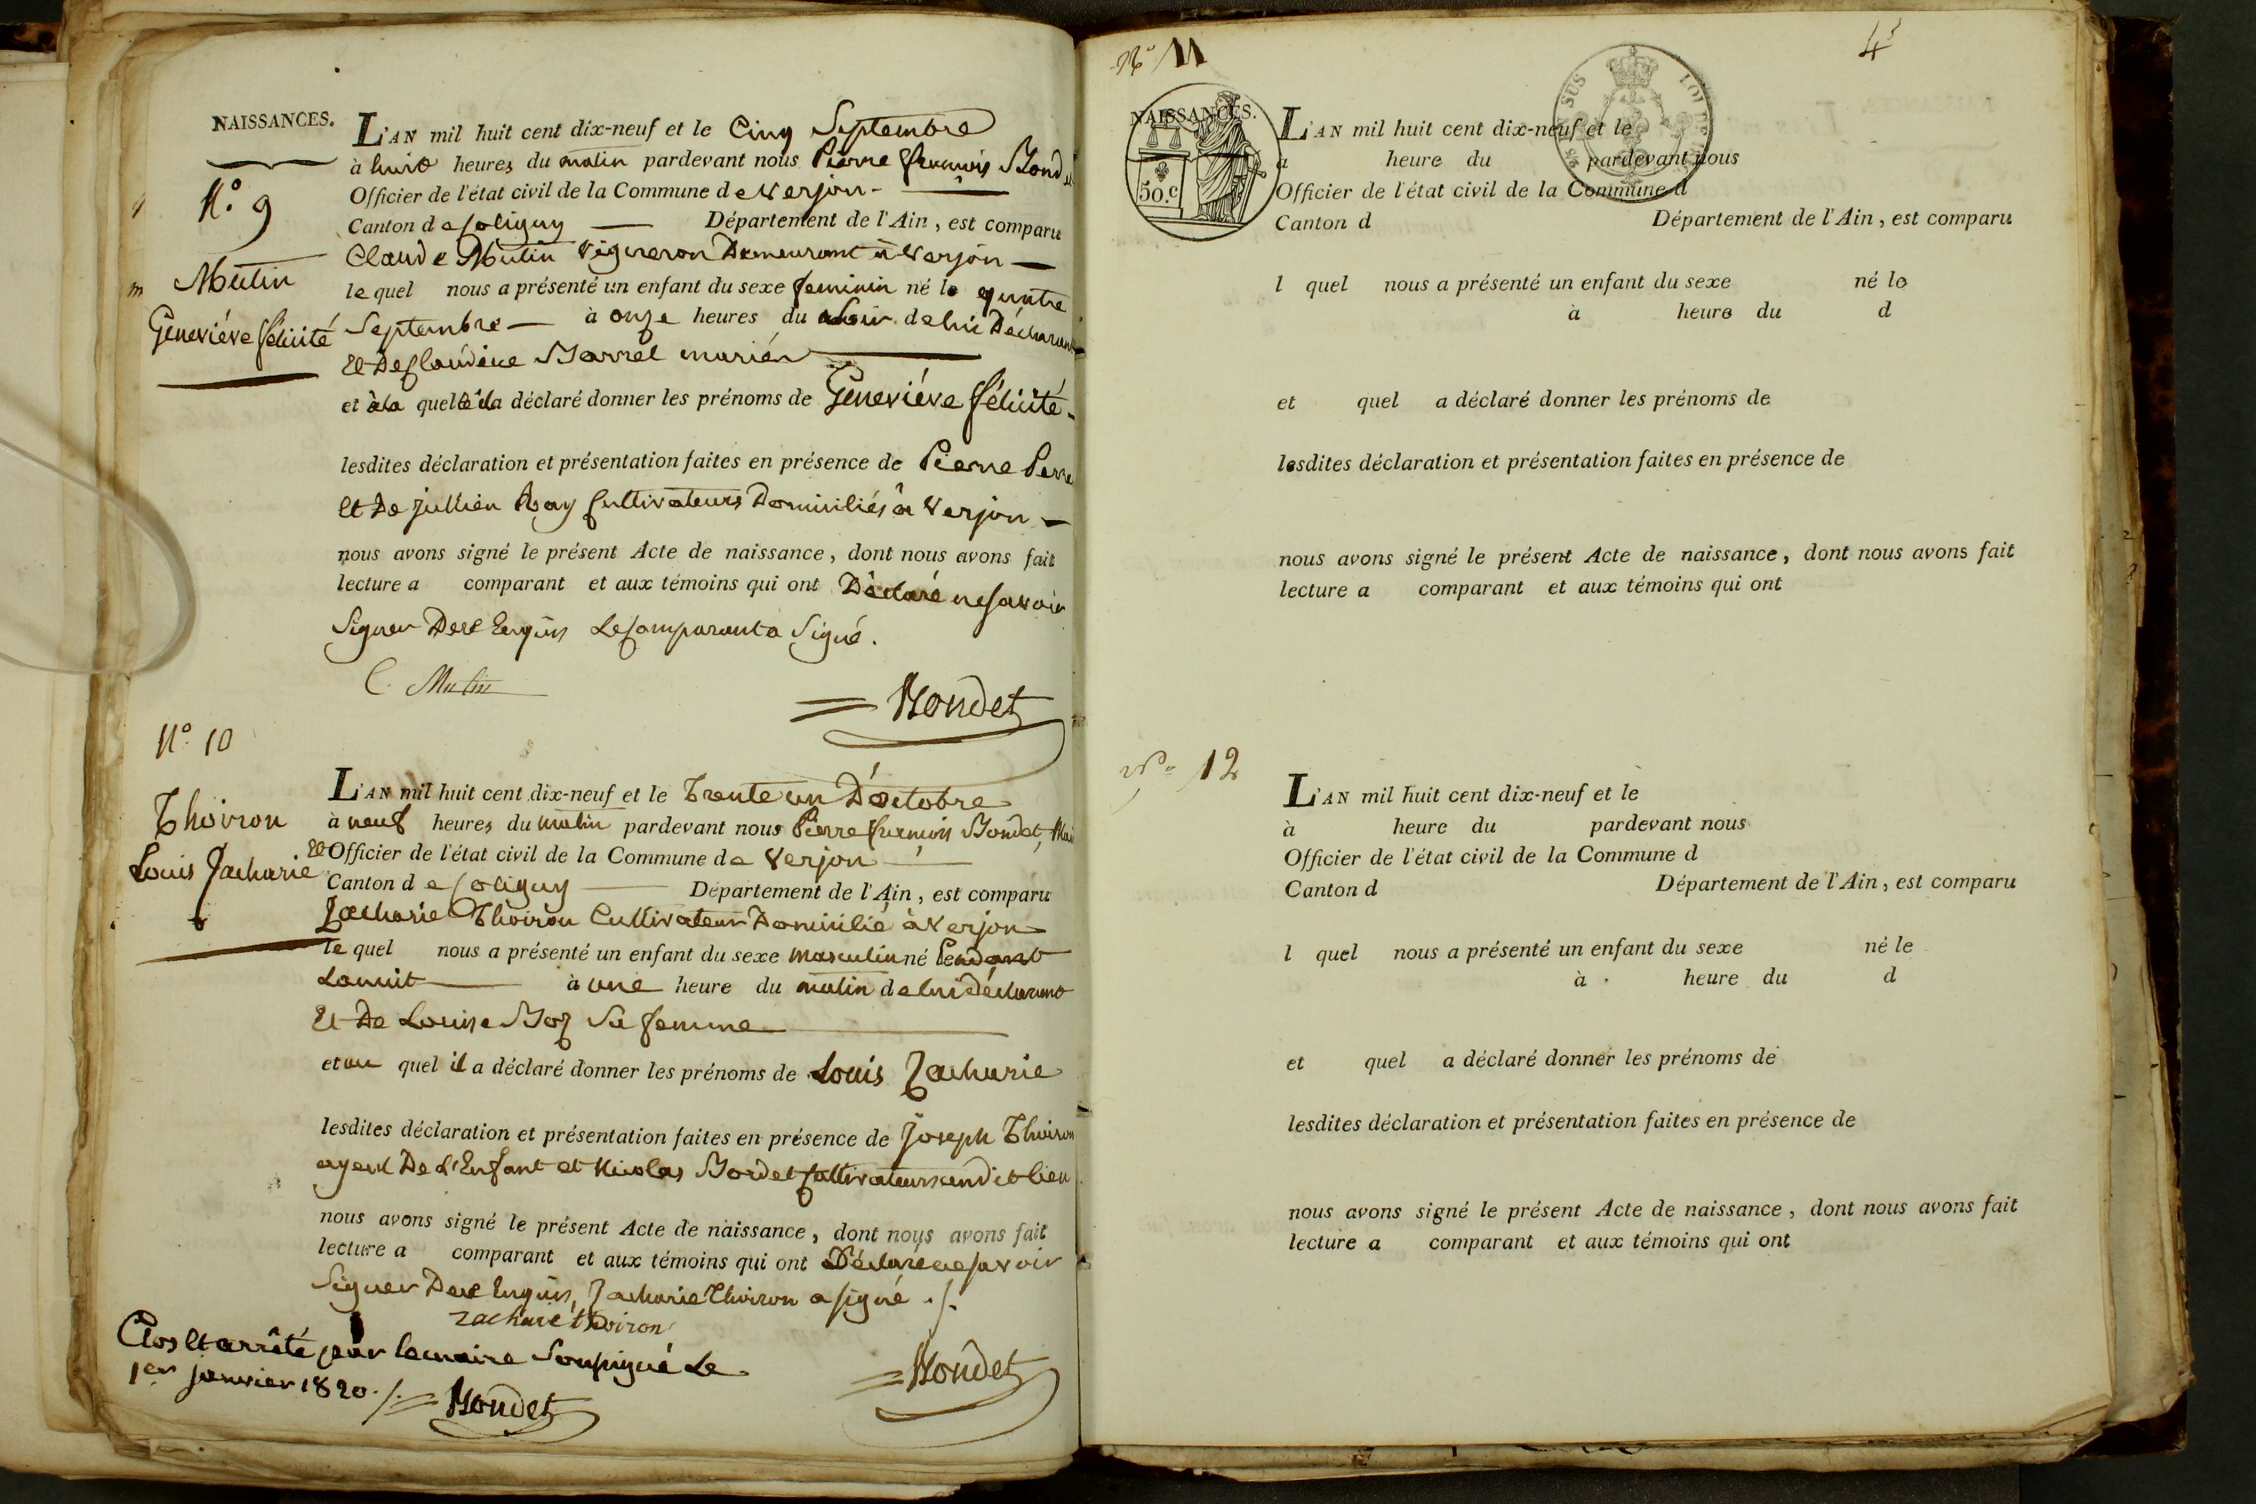 NAISSANCES.
N.° 9
Mutin
Geneviéve félicité
L'AN mil huit cent dix-neuf et le Cinq Septembre
à huit heures du matin pardevant nous Pierre françois Bondet
Officier de l'état civil de la Commune de Verjon -
Canton de Coligny — Département de l'Ain, est comparu
Claude Mutin Vigneron Demeurant à Verjon —
le quel nous a présenté un enfant du sexe feminin né le quatre
Septembre — à onze heures du Soir de lui Déclarant
Et De Claudine Borrel mariés
et à la quelle il a déclaré donner les prénoms de Geneviéve félicité -
lesdites déclaration et présentation faites en présence de Pierre
Et De jullien Cultivateurs Domiciliés à Verjon —
nous avons signé le présent Acte de naissance, dont nous avons fait
lecture a comparant et aux témoins qui ont Déclaré ne savoir
Signer De ce Enquis Le Comparant a Signé.
C. Mutin
Bondet
N.° 10
Thoiron
Louis Zacharie
L'AN mil huit cent dix-neuf et le Trente un D'octobre
à neuf heures du matin pardevant nous Pierre françois Bondet, Mai
Et Officier de l'état civil de la Commune de Verjon —
Canton de Coligny — Département de l'Ain, est comparu
Zacharie Thoiron Cultivateur Domicilié à Verjon
le quel nous a présenté un enfant du sexe masculin né Pendant
La nuit — à une heure du matin de lui Déclarant
Et De Louise Boz Sa femme —
et au quel il a déclaré donner les prénoms de Louis Zacharie
lesdites déclaration et présentation faites en présence de Joseph Thoiron
ayeul De L'Enfant et Nicolas Bordet Cultivateurs audit lieu
nous avons signé le présent Acte de naissance, dont nous avons fait
lecture a comparant et aux témoins qui ont Déclaré ne savoir
Signer De ce Enquis, Zacharie Thoiron a signé ./.
zacharie thoiron
Bondet
Clos Et arrêté par le maire Soussigné Le
1er janvier 1820 ./. Bondet
4
N° 11
NAISSANCES.
50.c
SUS
LOI DE
L'AN mil huit cent dix-neuf et le
à heure du pardevant nous
Officier de l'état civil de la Commune d
Canton d Département de l'Ain, est comparu
l quel nous a présenté un enfant du sexe né le
à heure du d
et quel a déclaré donner les prénoms de
lesdites déclaration et présentation faites en présence de
nous avons signé le présent Acte de naissance, dont nous avons fait
lecture a comparant et aux témoins qui ont
N° 12
L'AN mil huit cent dix-neuf et le
à heure du pardevant nous
Officier de l'état civil de la Commune d
Canton d Département de l'Ain, est comparu
l quel nous a présenté un enfant du sexe né le
à heure du d
et quel a déclaré donner les prénoms de
lesdites déclaration et présentation faites en présence de
nous avons signé le présent Acte de naissance, dont nous avons fait
lecture a comparant et aux témoins qui ont